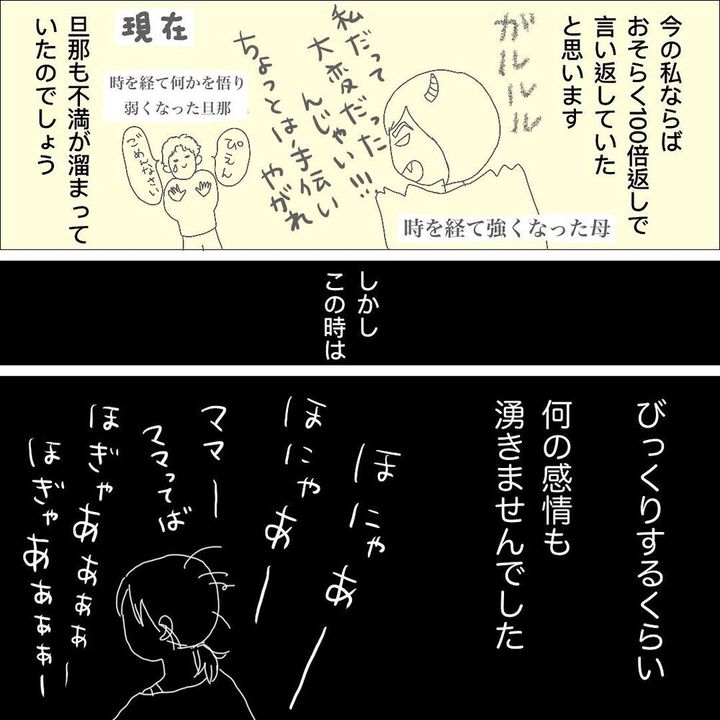 今の私ならば
おそらく100倍返しで
言い返していた
と思います
ガルルルル
私だって
大変だった
んじゃい!!!
ちょっとは、手伝い
やがれ
時を経て強くなった母
現在
時を経て何かを悟り
弱くなった旦那
ぴえん
ごめんなさい
旦那も不満が溜まって
いたのでしょう
しかし
この時は
びっくりするくらい
何の感情も
湧きませんでした
ほにゃあー
ほにゃあー
ママー
ママってば
ほぎゃあぁぁぁー
ほぎゃあぁぁぁー